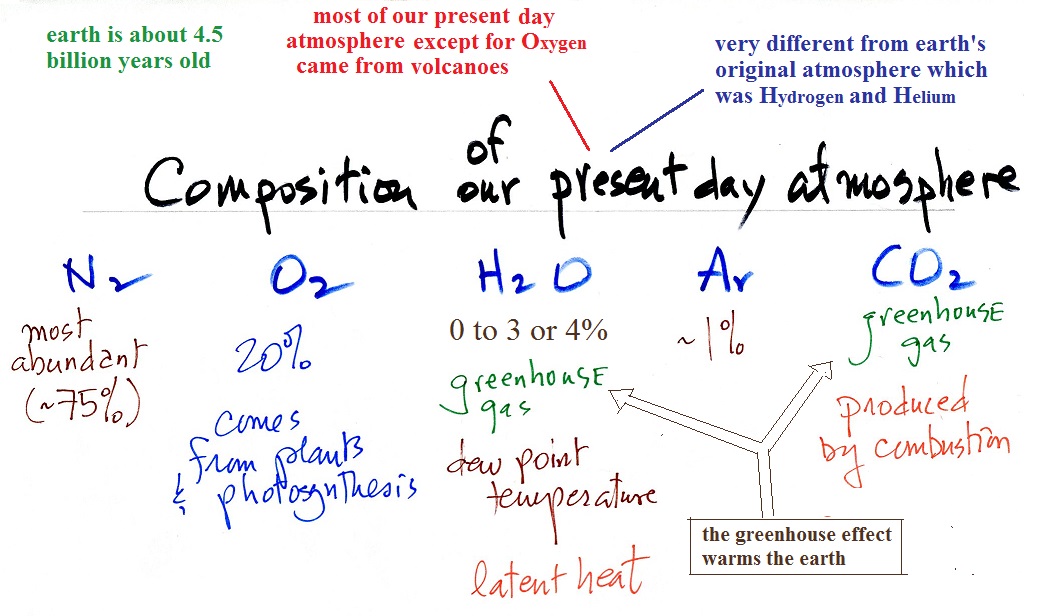 earth is about 4.5
billion years old
most of our present day
atmosphere except for Oxygen
came from volcanoes
very different from earth's
original atmosphere which
was Hydrogen and Helium
Composition of our present day atmosphere
N2
most
abundant
(~75%)
O2
20%
comes
from plants
& photosynthesis
H2O
0 to 3 or 4%
greenhouse
gas
dew point
temperature
latent heat
Ar
~1%
CO2
greenhouse
gas
produced
by combustion
the greenhouse effect
warms the earth